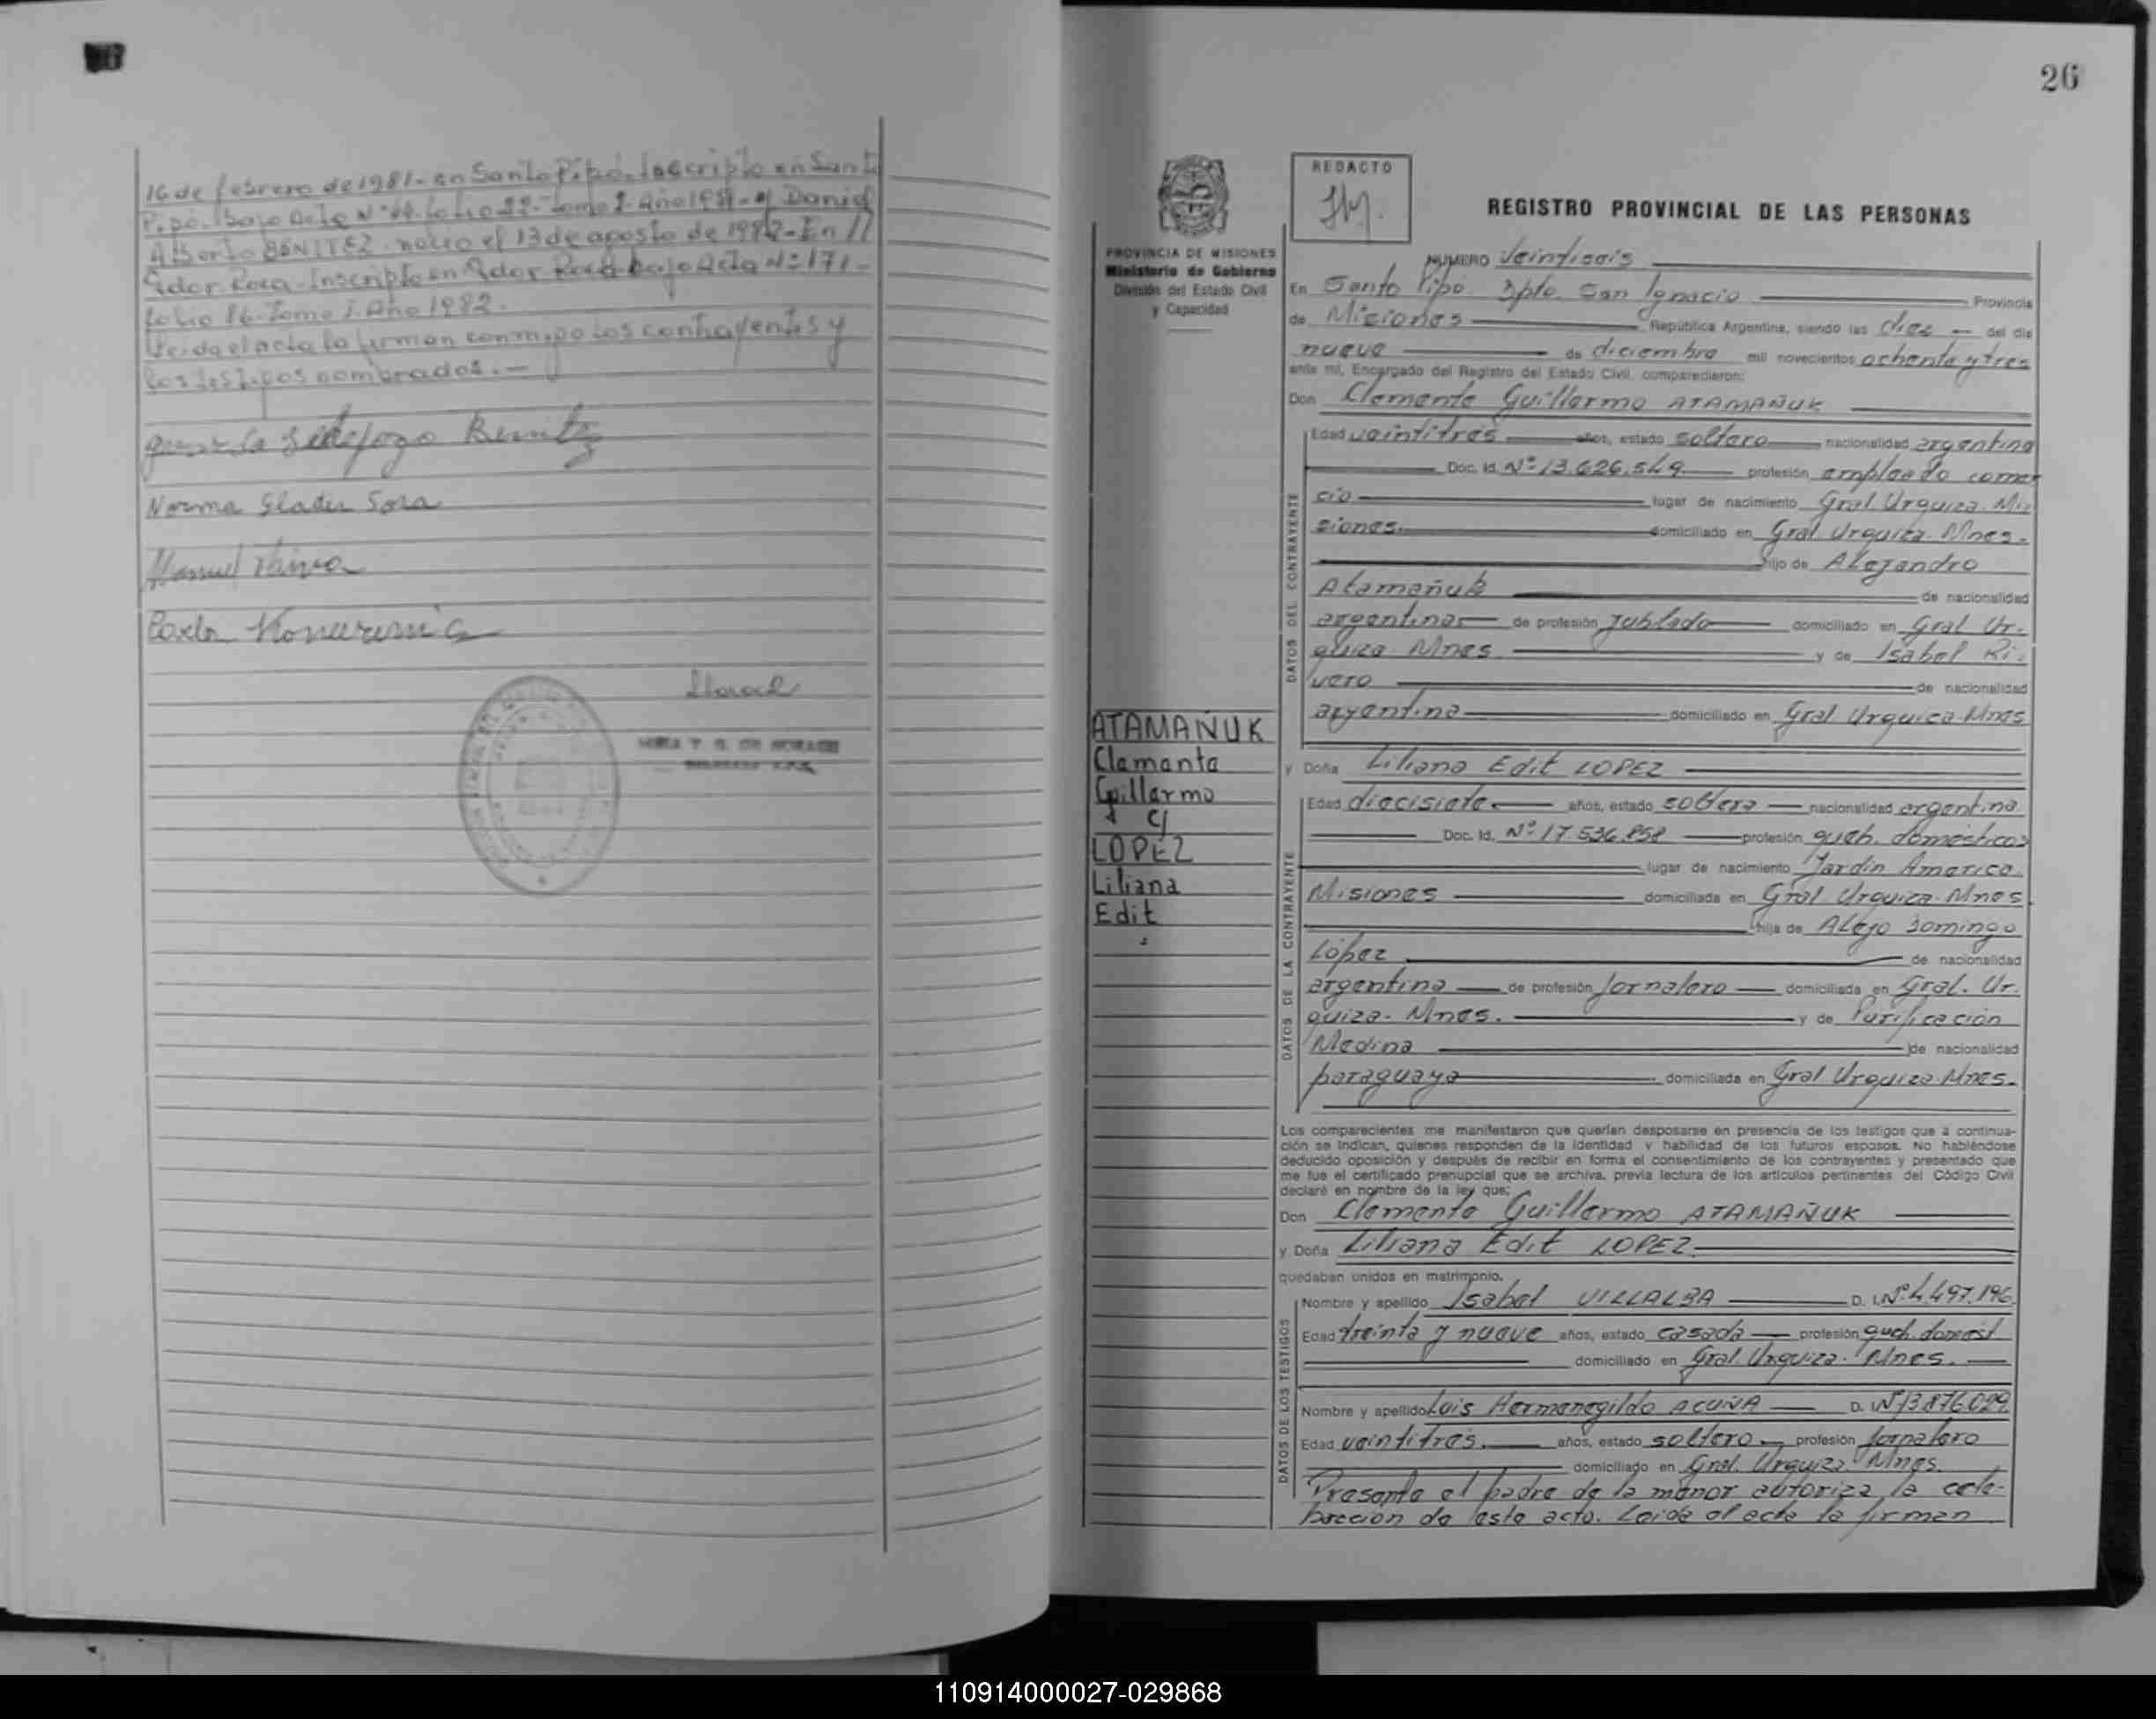 16 de febrero de 1981 - en Santo Pipó. Inscripto en Santo
Pipó. Bajo Acta Nº folio 22 - Tomo I - Año 1981 - y Daniel
Alberto BENITEZ nacio el 13 de agosto de 1982 - En //
Gdor. Roca - Inscripto en Gdor Roca bajo Acta Nº 171 -
folio 86 - Tomo I. Año 1982.
Leida el acta la firman conmigo los contrayentes y
los testigos nombrados. -
Ildefonzo Benitez
Norma Gladis Sosa
Manuel
26
REDACTO
REGISTRO PROVINCIAL DE LAS PERSONAS
PROVINCIA DE MISIONES
Ministerio de Gobierno
División del Estado Civil
y Capacidad
NUMERO Veintiseis
En Santo Pipó. Dpto. San Ignacio Provincia
de Misiones República Argentina, siendo las diez del día
nueve de diciembre mil novecientos ochenta y tres
ante mí, Encargado del Registro del Estado Civil, comparedieron:
Don Clemente Guillermo ATAMAÑUK
DATOS DEL CONTRAYENTE
Edad veintitres años, estado soltero nacionalidad argentina
Doc. Id. Nº 13.626.549 profesión empleado comer
cio lugar de nacimiento Gral Urquiza. Mi-
siones. domiciliado en Gral. Urquiza. Mnes.
hijo de Alejandro
Atamañuk de nacionalidad
argentina de profesión Jubilado domiciliado en Gral Ur-
quiza. Mnes y de Isabel Ri-
vero de nacionalidad
argentina domiciliado en Gral. Urquiza. Mnes
ATAMAÑUK
Clemente
Guillermo
c/
LOPEZ
Liliana
Edit
y Doña Liliana Edit LOPEZ
DATOS DE LA CONTRAYENTE
Edad diecisiete años, estado soltera nacionalidad argentina
Doc. Id. Nº 17.536.858 profesión queh. domésticos
lugar de nacimiento Jardín América
Misiones domiciliada en Gral. Urquiza. Mnes
hija de Alejo Domingo
López de nacionalidad
argentina de profesión Jornalero domiciliada en Gral. Ur-
quiza. Mnes. y de Purificación
Medina de nacionalidad
paraguaya domiciliada en Gral. Urquiza. Mnes.
Los comparecientes me manifestaron que querían desposarse en presencia de los testigos que a continua-
ción se indican, quienes responden de la identidad y habilidad de los futuros esposos. No habiéndose
deducido oposición y después de recibir en forma el consentimiento de los contrayentes y presentado que
me fue el certificado prenupcial que se archiva, previa lectura de los artículos pertinentes del Código Civil
declaré en nombre de la ley que:
Don Clemente Guillermo ATAMAÑUK
y Doña Liliana Edit LOPEZ
quedaban unidos en matrimonio.
DATOS DE LOS TESTIGOS
Nombre y apellido Isabel VILLALBA D. I. Nº 4.497.196
Edad treinta y nueve años, estado casada profesión queh. domést
domiciliado en Gral. Urquiza. Mnes.
Nombre y apellido Luis Hermenegildo ACUÑA D. I. Nº 13.876.029
Edad veintitres. años, estado soltero profesión jornalero
domiciliado en Gral. Urquiza. Mnes.
Presente el padre de la menor autoriza la cele-
bración de este acto. Leida el acta la firman
110914000027-029868